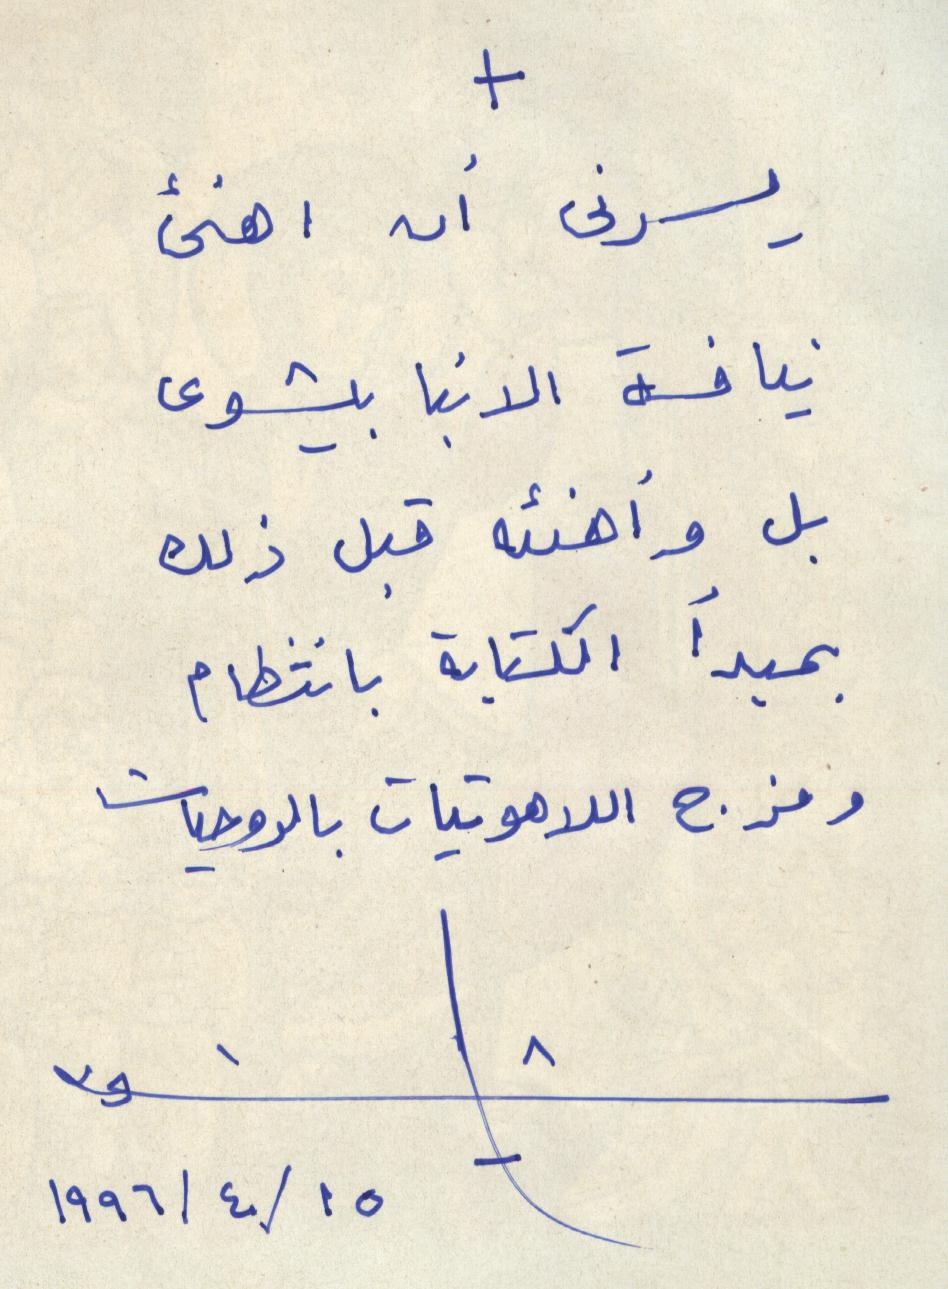 +
يسرنى أن اهنئ
نيافة الانبا بيشوى
بل وأهنئه قبل ذلك
بمبدأ الكتابة بانتظام
ومزج اللاهوتيات بالروحيات
١٥/٤/١٩٩٦